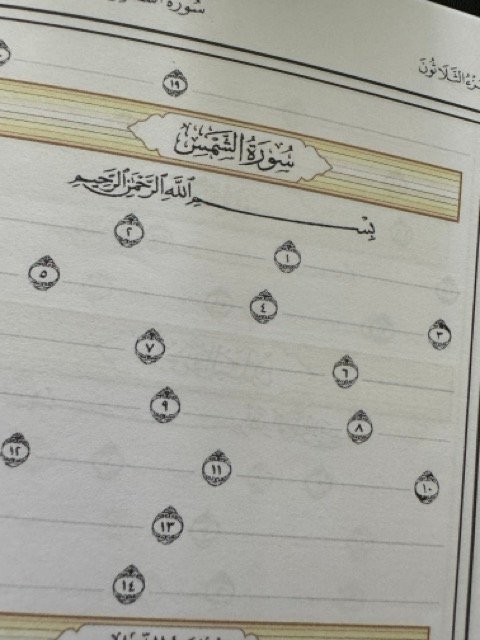 سُورَةُ
الثَّلَاثُونَ
١٩
سُورَةُ الشَّمْسِ
بِسْمِ اللَّهِ الرَّحْمَٰنِ الرَّحِيمِ
١ ٢
٣ ٤ ٥
٦ ٧
٨ ٩
١٠ ١١ ١٢
١٣
١٤